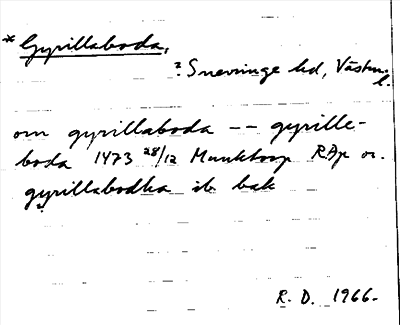 * Gyrillaboda,
? Snevringe hd, Västm. l.
om gyrillaboda -- gyrille-
boda 1473 28/12 Munktorp RAp or.
gyrillabodha ib bak
R. D. 1966.